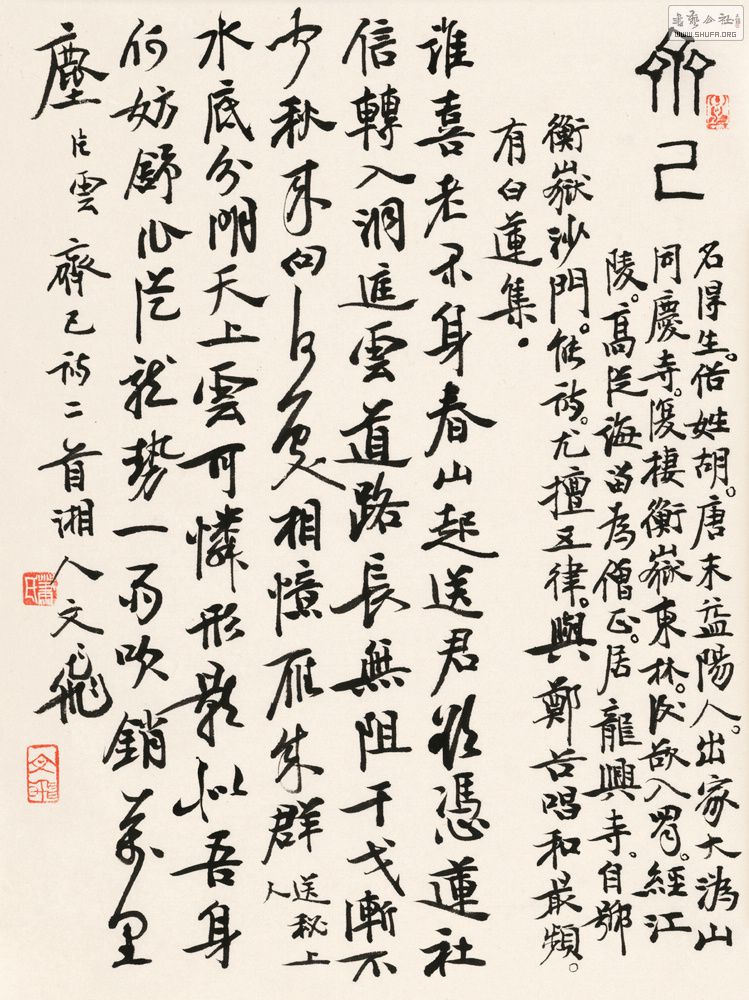 齊己
名得生。俗姓胡。唐末益陽人。出家大溈山
同慶寺。復棲衡嶽東林。後欲入蜀。經江
陵。高從誨留為僧正。居龍興寺。自號
衡嶽沙門。能詩。尤擅五律。與鄭谷唱和最頻。
有白蓮集。
誰喜老閑身春山起送君欲憑蓮社
信轉入洞庭雲道路長無阻干戈漸不
聞秋來向何處相憶雁成群 送秘上
人
水底分明天上雲可憐形影似吾身
何妨舒作從龍勢一雨吹銷萬里
塵 片雲 齊己詩二首湘人文飛
文飛
WWW.SHUFA.ORG